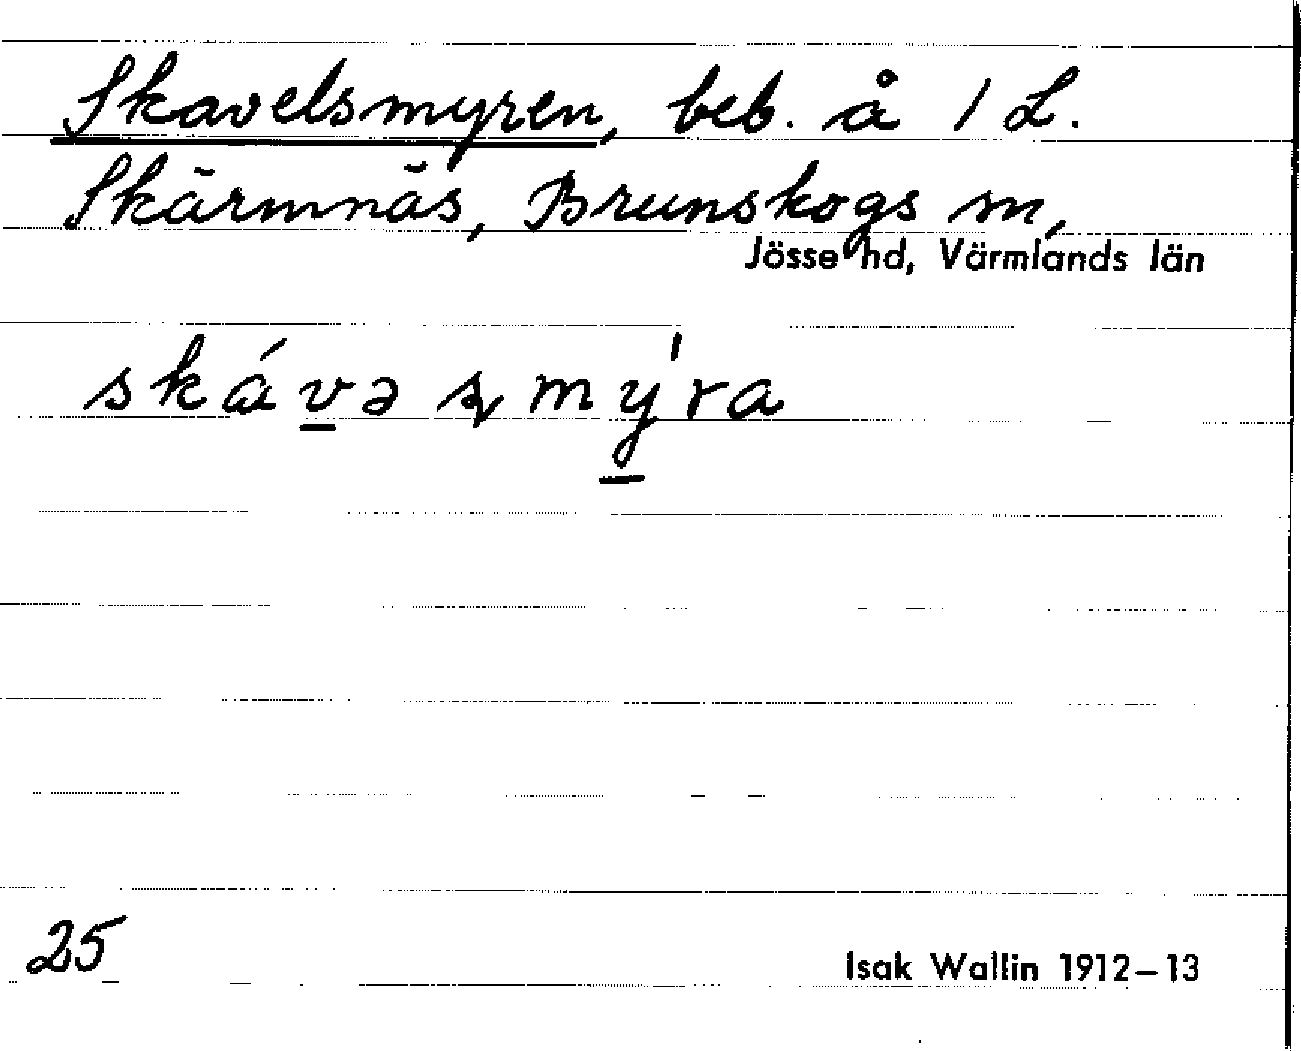 Skavelsmyren, beb. å 1 L.
Skärmnäs, Brunskogs sn,
Jösse hd, Värmlands län
skávəʂmy̍ra
25
Isak Wallin 1912–13